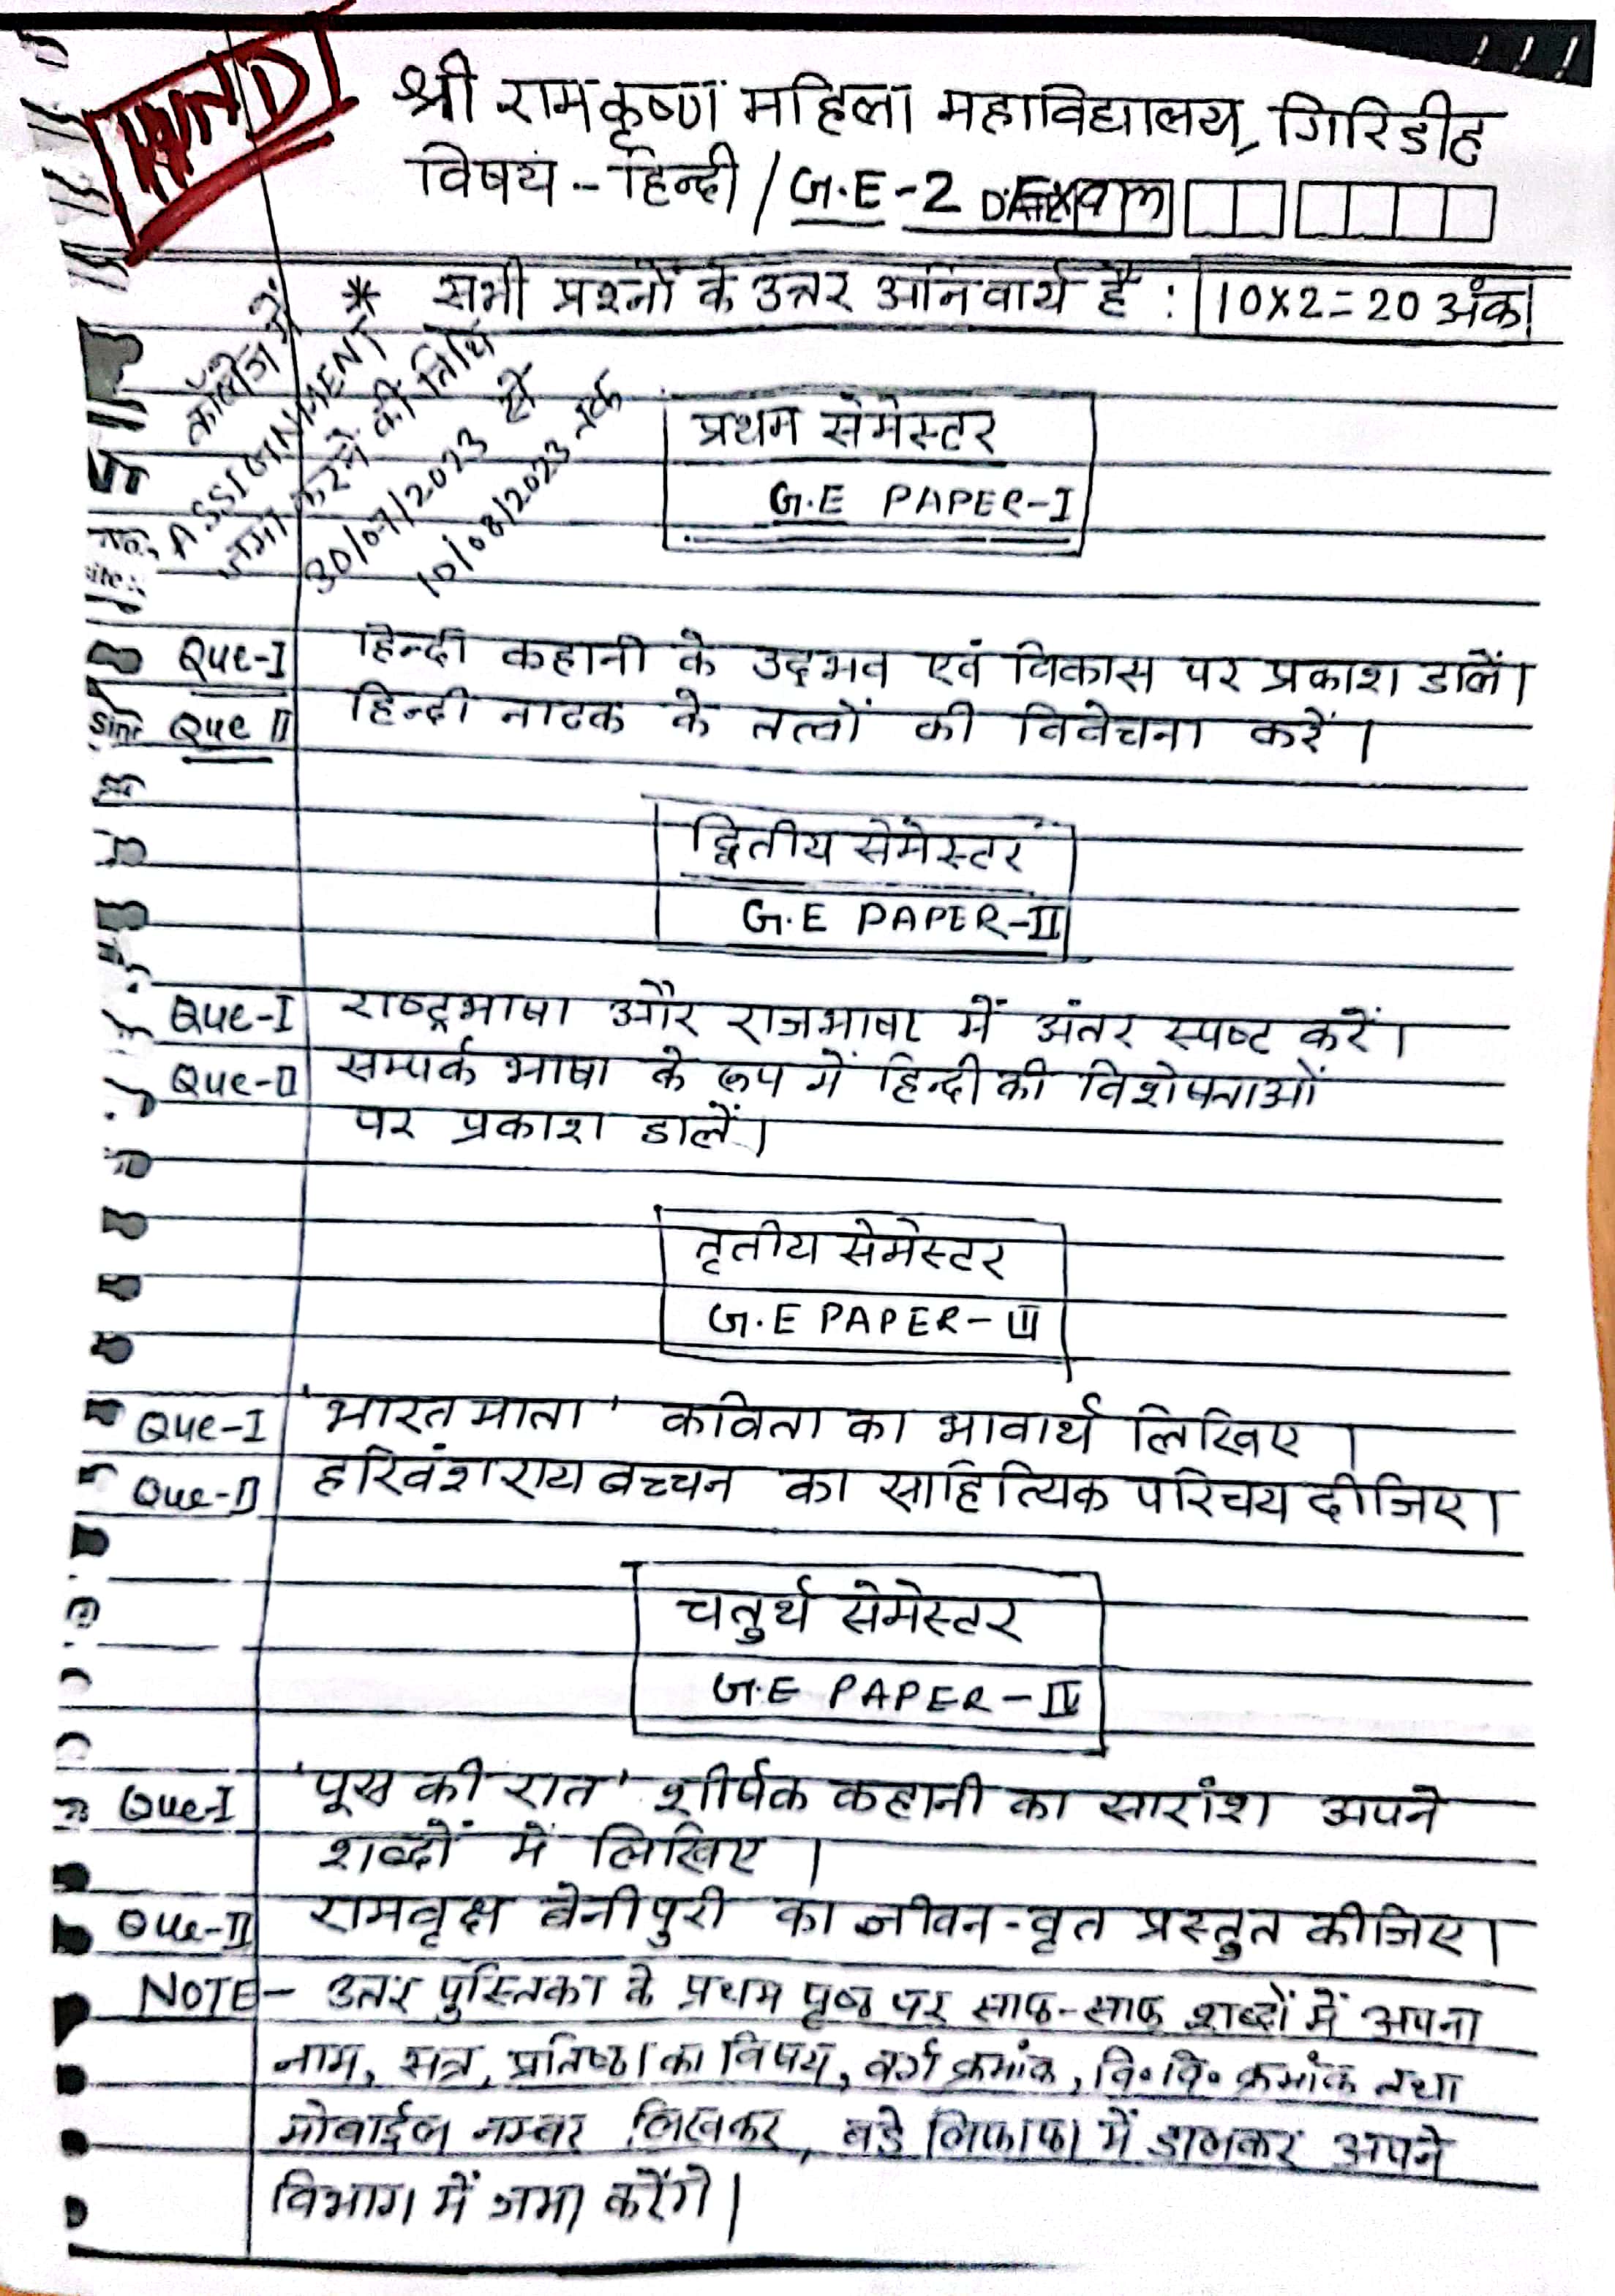 HINDI
श्री रामकृष्ण महिला महाविद्यालय, गिरिडीह
विषय - हिन्दी / G.E-2
* सभी प्रश्नों के उत्तर अनिवार्य है : 10x2=20 अंक
कॉलेज में
ASSIGNMENT
जमा करने की तिथि
30/07/2023 से
10/08/2023 तक
प्रथम सेमेस्टर
G.E PAPER-I
Que-I हिन्दी कहानी के उद्भव एवं विकास पर प्रकाश डालें।
Que II हिन्दी नाटक के तत्वों की विवेचना करें।
द्वितीय सेमेस्टर
G.E PAPER-II
Que-I राष्ट्रभाषा और राजभाषा में अंतर स्पष्ट करें।
Que-II सम्पर्क भाषा के रूप में हिन्दी की विशेषताओं
पर प्रकाश डालें।
तृतीय सेमेस्टर
G.E PAPER-III
Que-I 'भारतमाता' कविता का भावार्थ लिखिए।
Que-II हरिवंशराय बच्चन का साहित्यिक परिचय दीजिए।
चतुर्थ सेमेस्टर
G.E PAPER-IV
Que-I 'पूस की रात' शीर्षक कहानी का सारांश अपने
शब्दों में लिखिए।
Que-II रामवृक्ष बेनीपुरी का जीवन-वृत प्रस्तुत कीजिए।
NOTE- उत्तर पुस्तिका के प्रथम पृष्ठ पर साफ-साफ शब्दों में अपना
नाम, सत्र, प्रतिष्ठा का विषय, वर्ग क्रमांक, वि०वि० क्रमांक तथा
मोबाईल नम्बर लिखकर, बड़े लिफाफा में डालकर अपने
विभाग में जमा करेंगे।